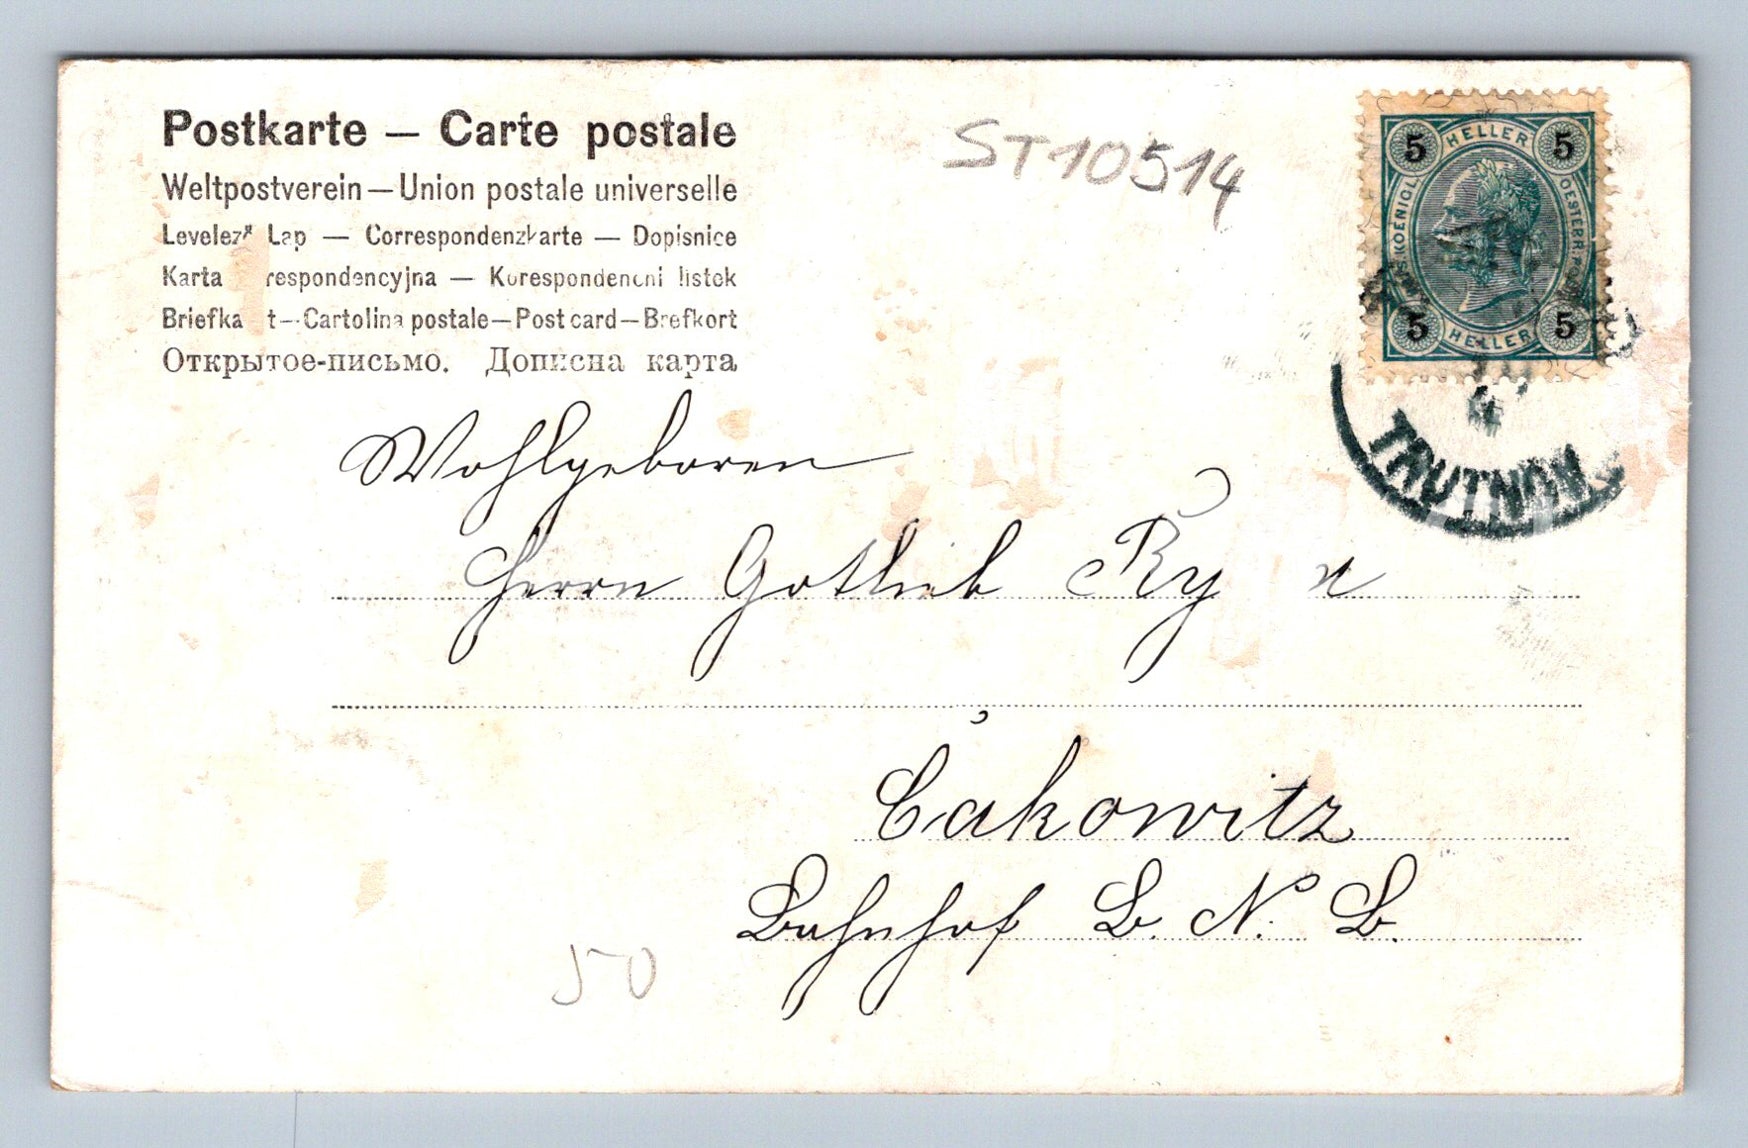 Postkarte — Carte postale
Weltpostverein — Union postale universelle
Levelező Lap — Correspondenzkarte — Dopisnice
Karta respondencyjna — Korespondencni listek
Briefka t — Cartolina postale — Post card — Brefkort
Открытое-письмо. Дописна карта
ST10514
5 HELLER 5
K.KOENIGL. OESTERR. POST
5 HELLER 5
TRUTNOV
Wohlgeboren
Herrn Gotlieb
Čakowitz
Bahnhof B. N. B.
50